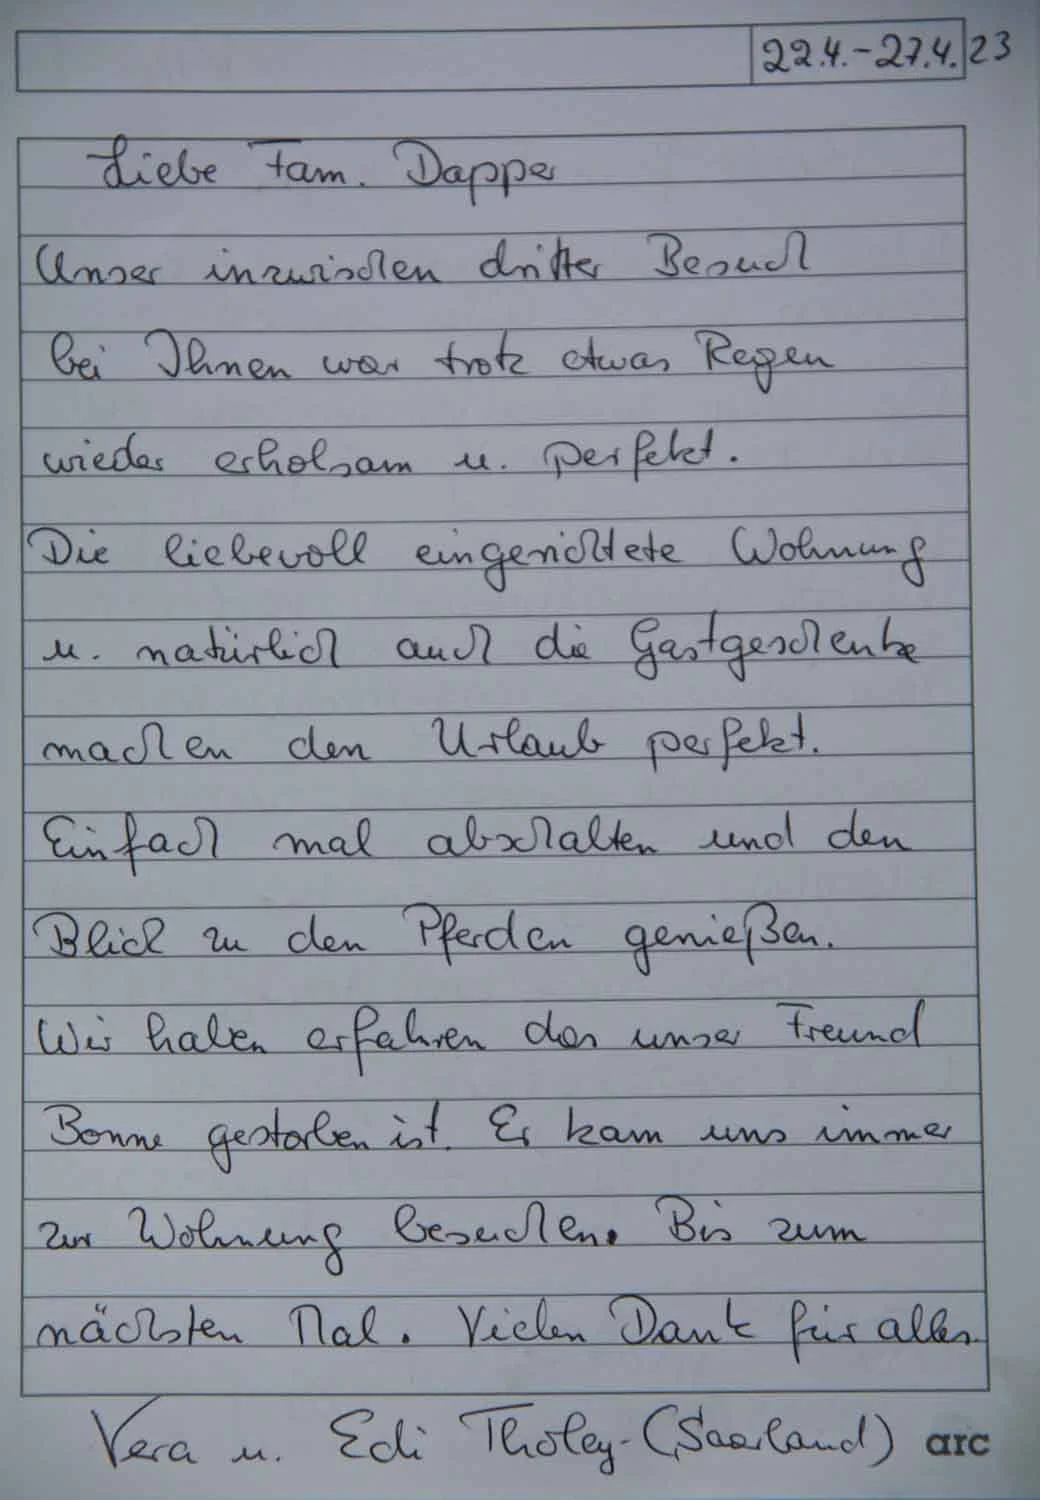 22.4.-27.4.23
Liebe Fam. Dapper
Unser inzwischen dritter Besuch
bei Ihnen war trotz etwas Regen
wieder erholsam u. perfekt.
Die liebevoll eingerichtete Wohnung
u. natürlich auch die Gastgeschenke
machen den Urlaub perfekt.
Einfach mal abschalten und den
Blick zu den Pferden genießen.
Wir haben erfahren das unser Freund
Bonne gestorben ist. Er kam uns immer
zur Wohnung besuchen. Bis zum
nächsten Mal. Vielen Dank für alles.
Vera u. Edi Tholey-(Saarland) arc